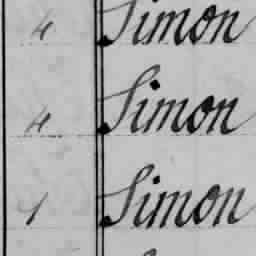 4 Simon
4 Simon
1 Simon